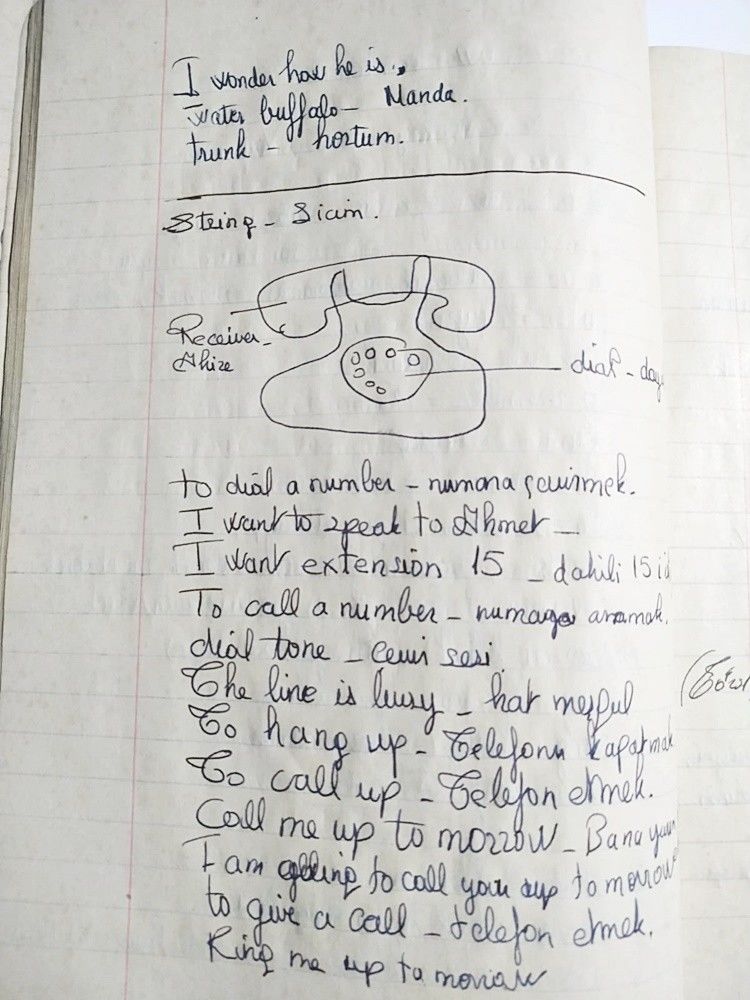 I wonder how he is.
Water buffalo – Manda.
trunk – hortum.
String – Sicim.
Receiver –
Ahize
dial –
to dial a number – numara çevirmek.
I want to speak to Ahmet –
I want extension 15 – dahili 15
To call a number – numara aramak.
dial tone – çevir sesi.
The line is busy – hat meşgul
To hang up – Telefonu kapatmak
To call up – Telefon etmek.
Call me up to morrow – Bana
I am going to call you up to morrow
to give a call – telefon etmek.
Ring me up to morrow